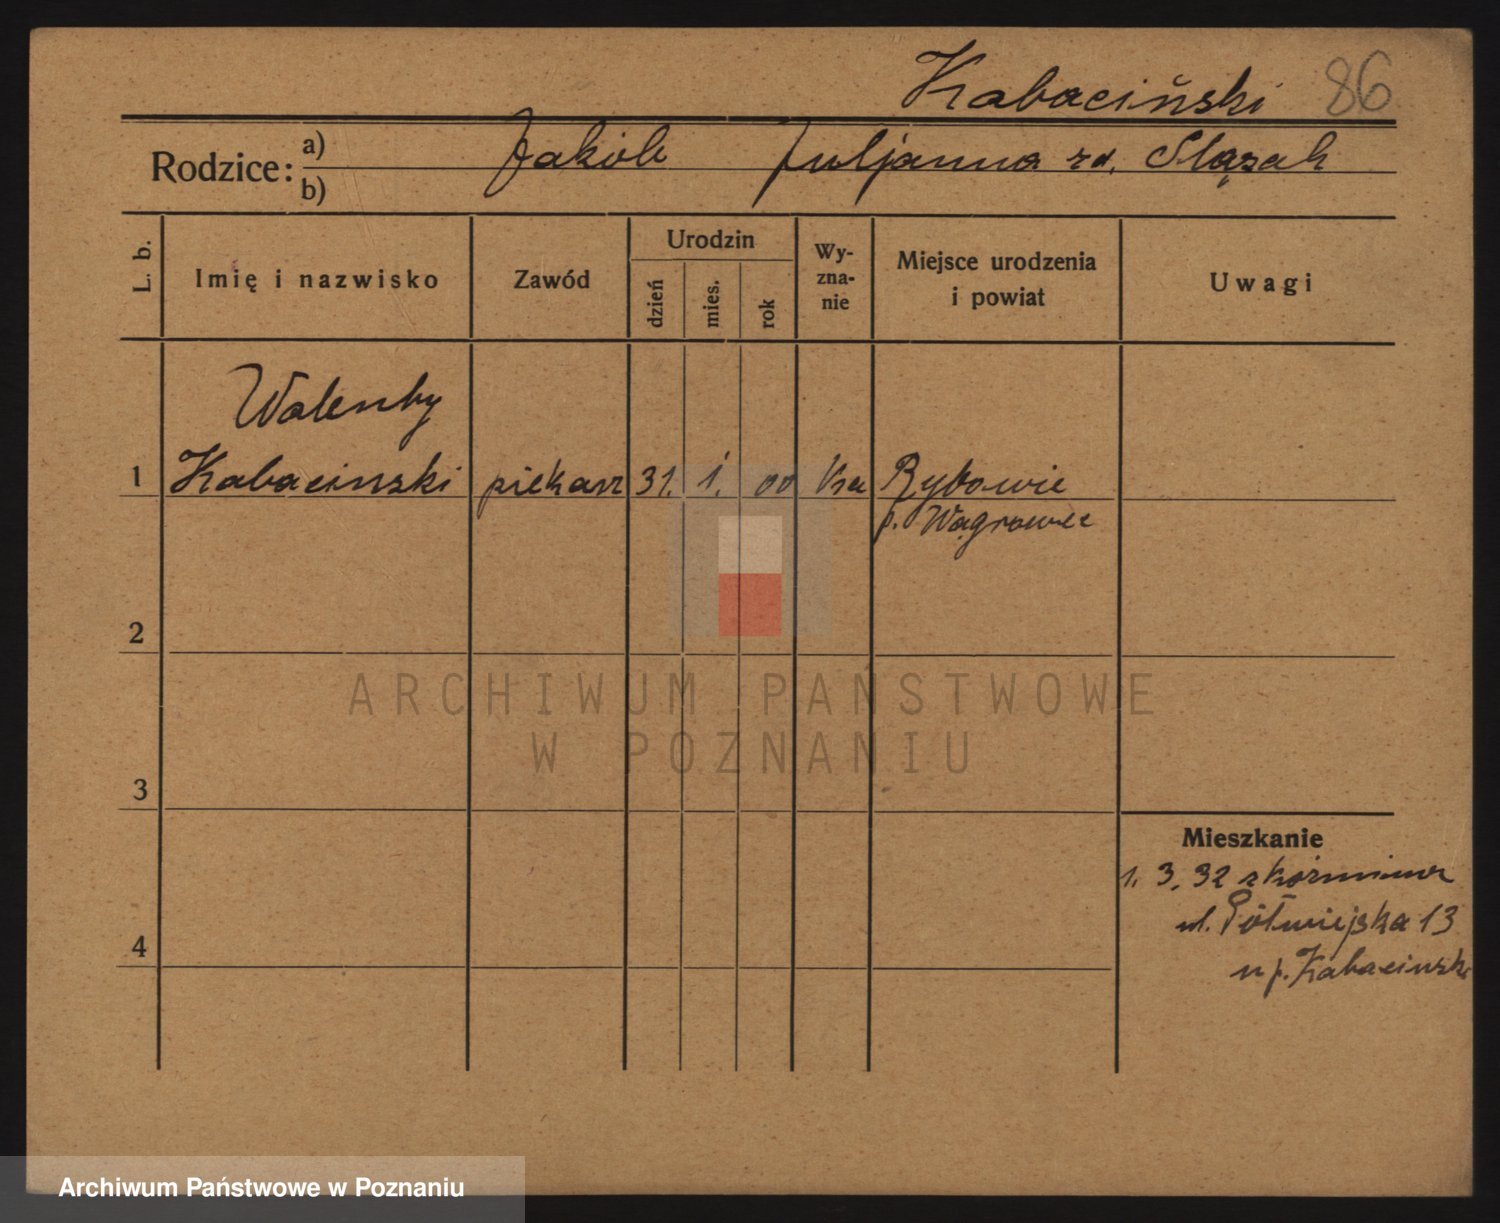 Kabaciński 86
Rodzice: a) Jakób Juljanna zd. Slązak
b)
L. b.
Imię i nazwisko
Zawód
Urodzin
dzień
mies.
rok
Wy-
zna-
nie
Miejsce urodzenia
i powiat
Uwagi
Walenty
1 Kabacinski piekarz 31. 1. 00 Rybowie
p. Wągrowiec
2
ARCHIWUM PAŃSTWOWE
W POZNANIU
3
Mieszkanie
1. 3. 32 z Koźmina
ul. Półwiejska 13
4
u p. Kabacinski
Archiwum Państwowe w Poznaniu